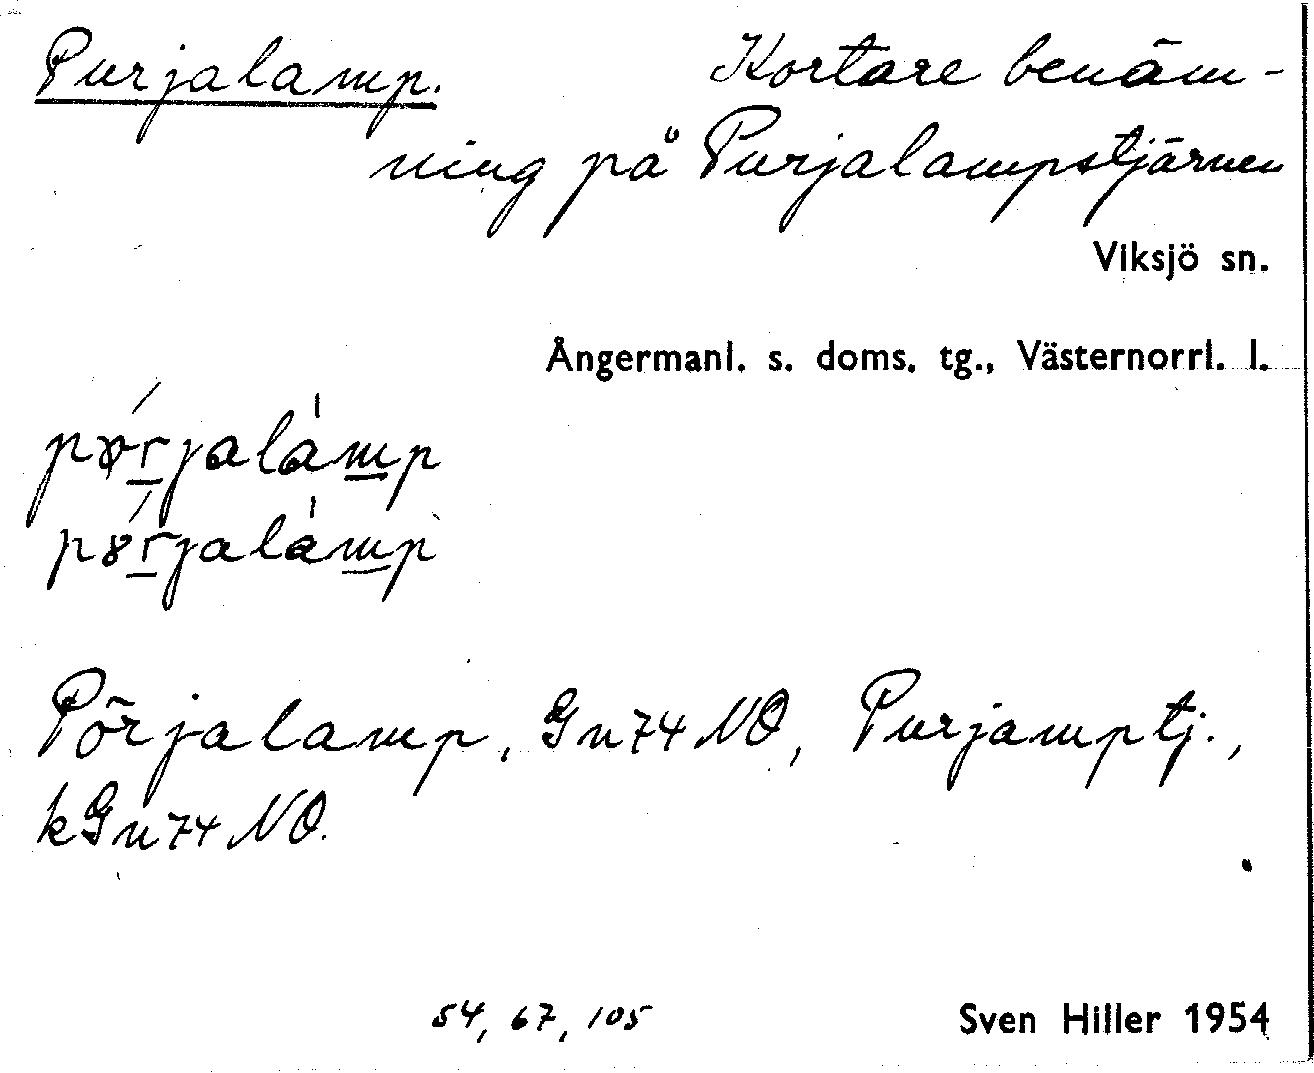 Purjalamp. Kortare benäm-
ning på Purjalampstjärnen
Viksjö sn.
Ångermanl. s. doms. tg., Västernorrl. l.
Pörjalamp, Gn74NO, Purjamptj.,
kGn74NO.
54, 67, 105 Sven Hiller 1954